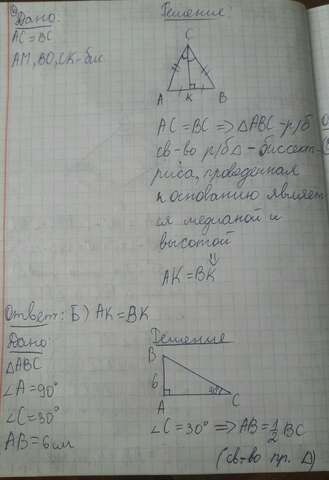 Дано:
AC = BC
AM, BO, CK - бис
Решение:
C
A K B
AC = BC => △ABC - р/б
св-во р/б △ - биссект-
риса, проведенная
к основанию являет-
ся медианой и
высотой
⇓
AK = BK
Ответ: Б) AK = BK
Дано:
△ABC
∠A = 90°
∠C = 30°
AB = 6см
Решение
B
6
A
30°
C
∠C = 30° => AB = 1/2 BC
(св-во пр. △)